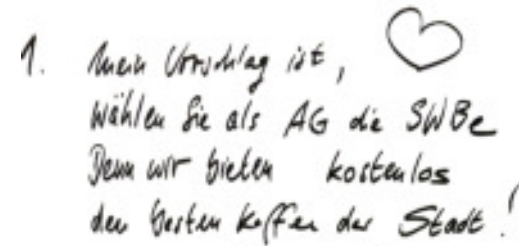 1. Mein Vorschlag ist,
Wählen Sie als AG die SWBe
Denn wir bieten kostenlos
den besten Kaffee der Stadt!